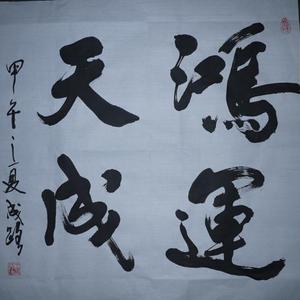 鴻運
天成
甲午之夏